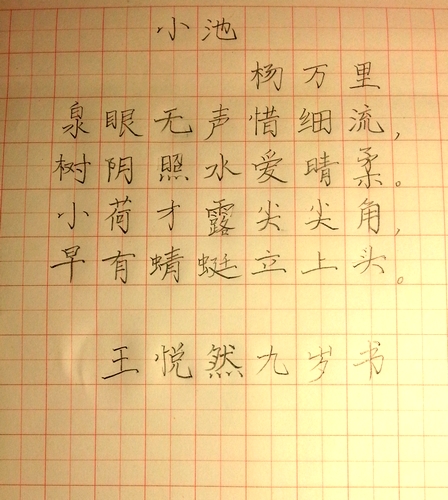 小池
杨万里
泉眼无声惜细流，
树阴照水爱晴柔。
小荷才露尖尖角，
早有蜻蜓立上头。
王悦然九岁书